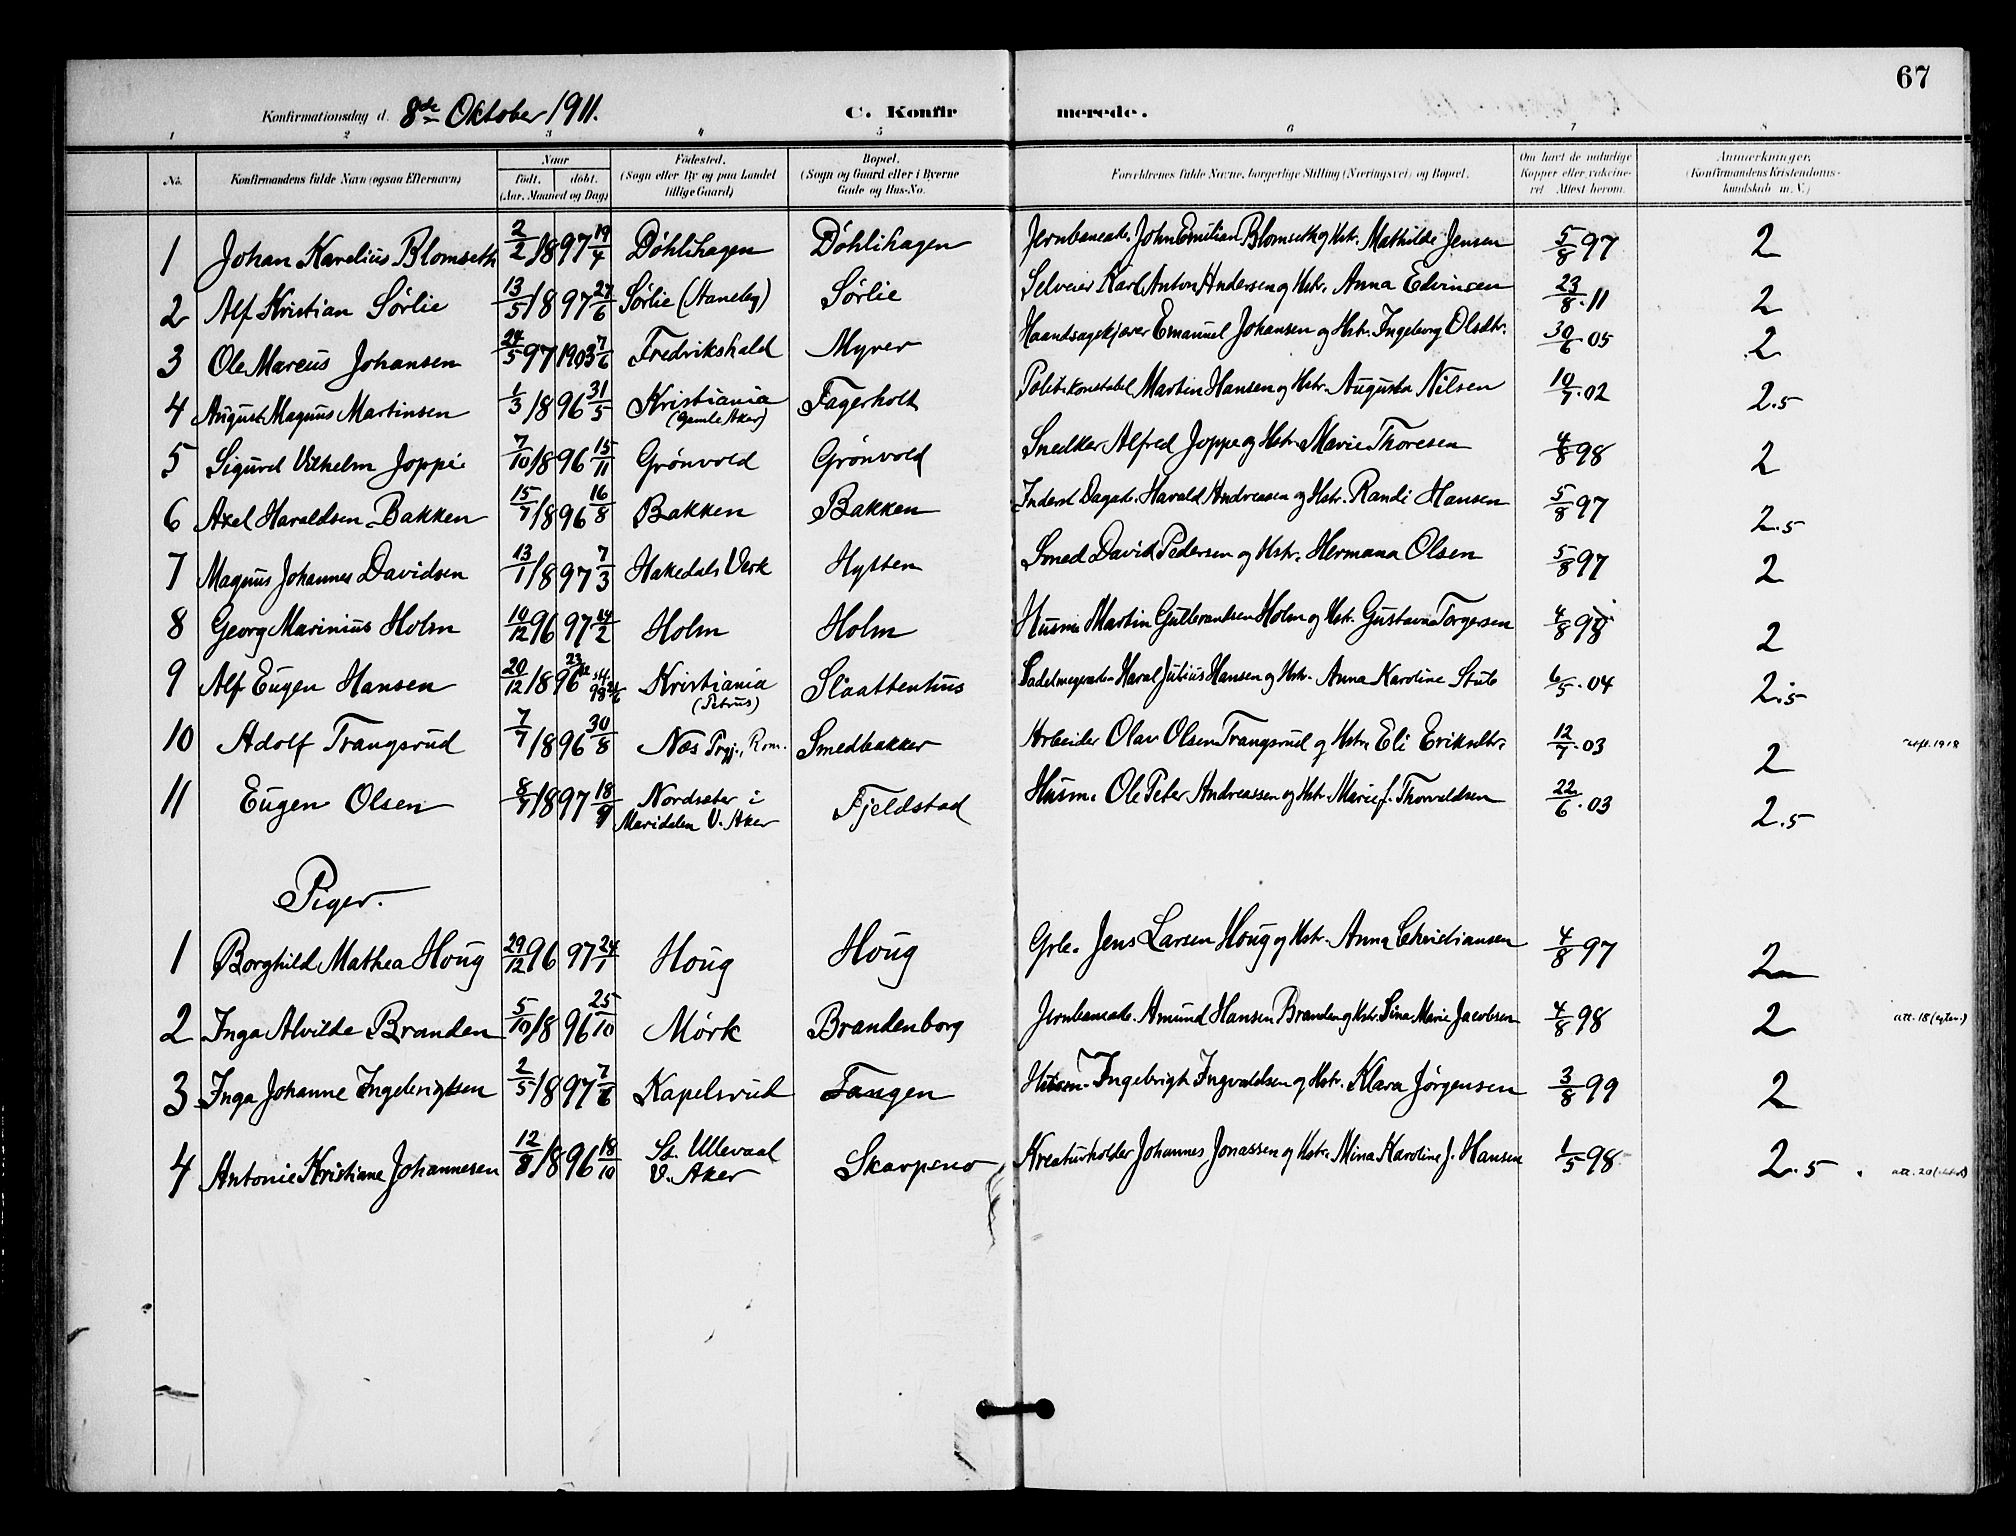 67
Konfirmationsdag d. 8de Oktober 1911. C. Konfirmerede.
1 2 3 4 5 6 7 8
No. Konfirmandens fulde Navn (ogsaa Efternavn) Naar født, døbt. (Aar, Maaned og Dag) Fødested. (Sogn eller By og paa Landet tillige Gaard) Bopæl. (Sogn og Gaard eller i Byerne Gade og Hus-No. Forældrenes fulde Navne, borgerlige Stilling (Næringsvei) og Bopæl. Om havt de naturlige Kopper eller vakcineret Attest herom. Anmerkninger. (Konfirmandens Kristendomskundskab m. V.)
1 Johan Karelius Blomseth 2/2 1897 19/4 Döhlihagen Döhlihagen Jernbanearb. John Emilian Blomseth og Hstr. Mathilde Jensen 5/8 97 2
2 Alf Kristian Sørlie 13/5 1897 27/6 Sørlie (Haneby) Sørlie Selveier Karl Anton Andersen og Hstr. Anna Edvinsen 23/8 11 2
3 Ole Marcus Johansen 24/5 97 1903 7/6 Fredrikshald Myrer Emanuel Johansen og Hstr. Ingeborg Olsdtr. 30/6 05 2
4 August Magnus Martinsen 1/3 1896 31/5 Kristiania (Gamle Aker) Fagerholt Politikonstabel Martin Hansen og Hstr. Augusta Nilsen 10/7 02 2.5
5 Sigurd Vilhelm Joppe 7/10 1896 15/11 Grönvold Grönvold Snedker Alfred Joppe og Hstr. Marie Thoresen 4/8 98 2
6 Axel Haraldsen Bakken 15/7 1896 16/8 Bakken Bakken Inderst Dagarb. Harald Andreassen og Hstr. Randi Hansen 5/8 97 2.5
7 Magnus Johannes Davidsen 13/1 1897 7/3 Hakedals Verk Hytten Smed David Pedersen og Hstr. Hermana Olsen 5/8 97 2
8 Georg Marinius Holm 10/12 96 97 14/2 Holm Holm Husm. Martin Gulbrandsen Holm og Hstr. Gustava Torgersen 4/8 98 2
9 Alf Eugen Hansen 20/12 1896 Kristiania (Petrus) Slaattenhus Haral Julius Hansen og Hstr. Anna Karoline Stub 6/5 04 2.5
10 Adolf Trangsrud 7/7 1896 30/8 Nes Prgj., Rom. Smedbakken Arbeider Olav Olsen Trangsrud og Hstr. Eli Eriksdtr. 12/7 03 2 1918
11 Eugen Olsen 8/7 1897 18/9 Nordsæter i Maridalen V. Aker Fjeldstad Husm. Ole Peter Andreassen og Hstr. Marie f. Thorvaldsen 22/6 03 2.5
Piger.
1 Borghild Mathea Houg 29/12 96 97 24/1 Houg Houg Grbr. Jens Larsen Houg og Hstr. Anna Christiansen 4/8 97 2
2 Inga Alvilde Branden 5/10 1896 25/10 Mörk Brandenborg Jernbanearb. Amund Hansen Branden og Hstr. Sina Marie Jacobsen 4/8 98 2 att. 18
3 Inga Johanne Ingebrigtsen 2/5 1897 7/6 Kapelsrud Tangen Husm. Ingebrigt Ingvaldsen og Hstr. Klara Jørgensen 3/8 99 2
4 Antonie Kristiane Johannesen 12/9 1896 18/10 St. Ullevaal V. Aker Skarpsno Kreaturholder Johannes Jonassen og Hstr. Mina Karoline J. Hansen 1/5 98 2.5 att. 20